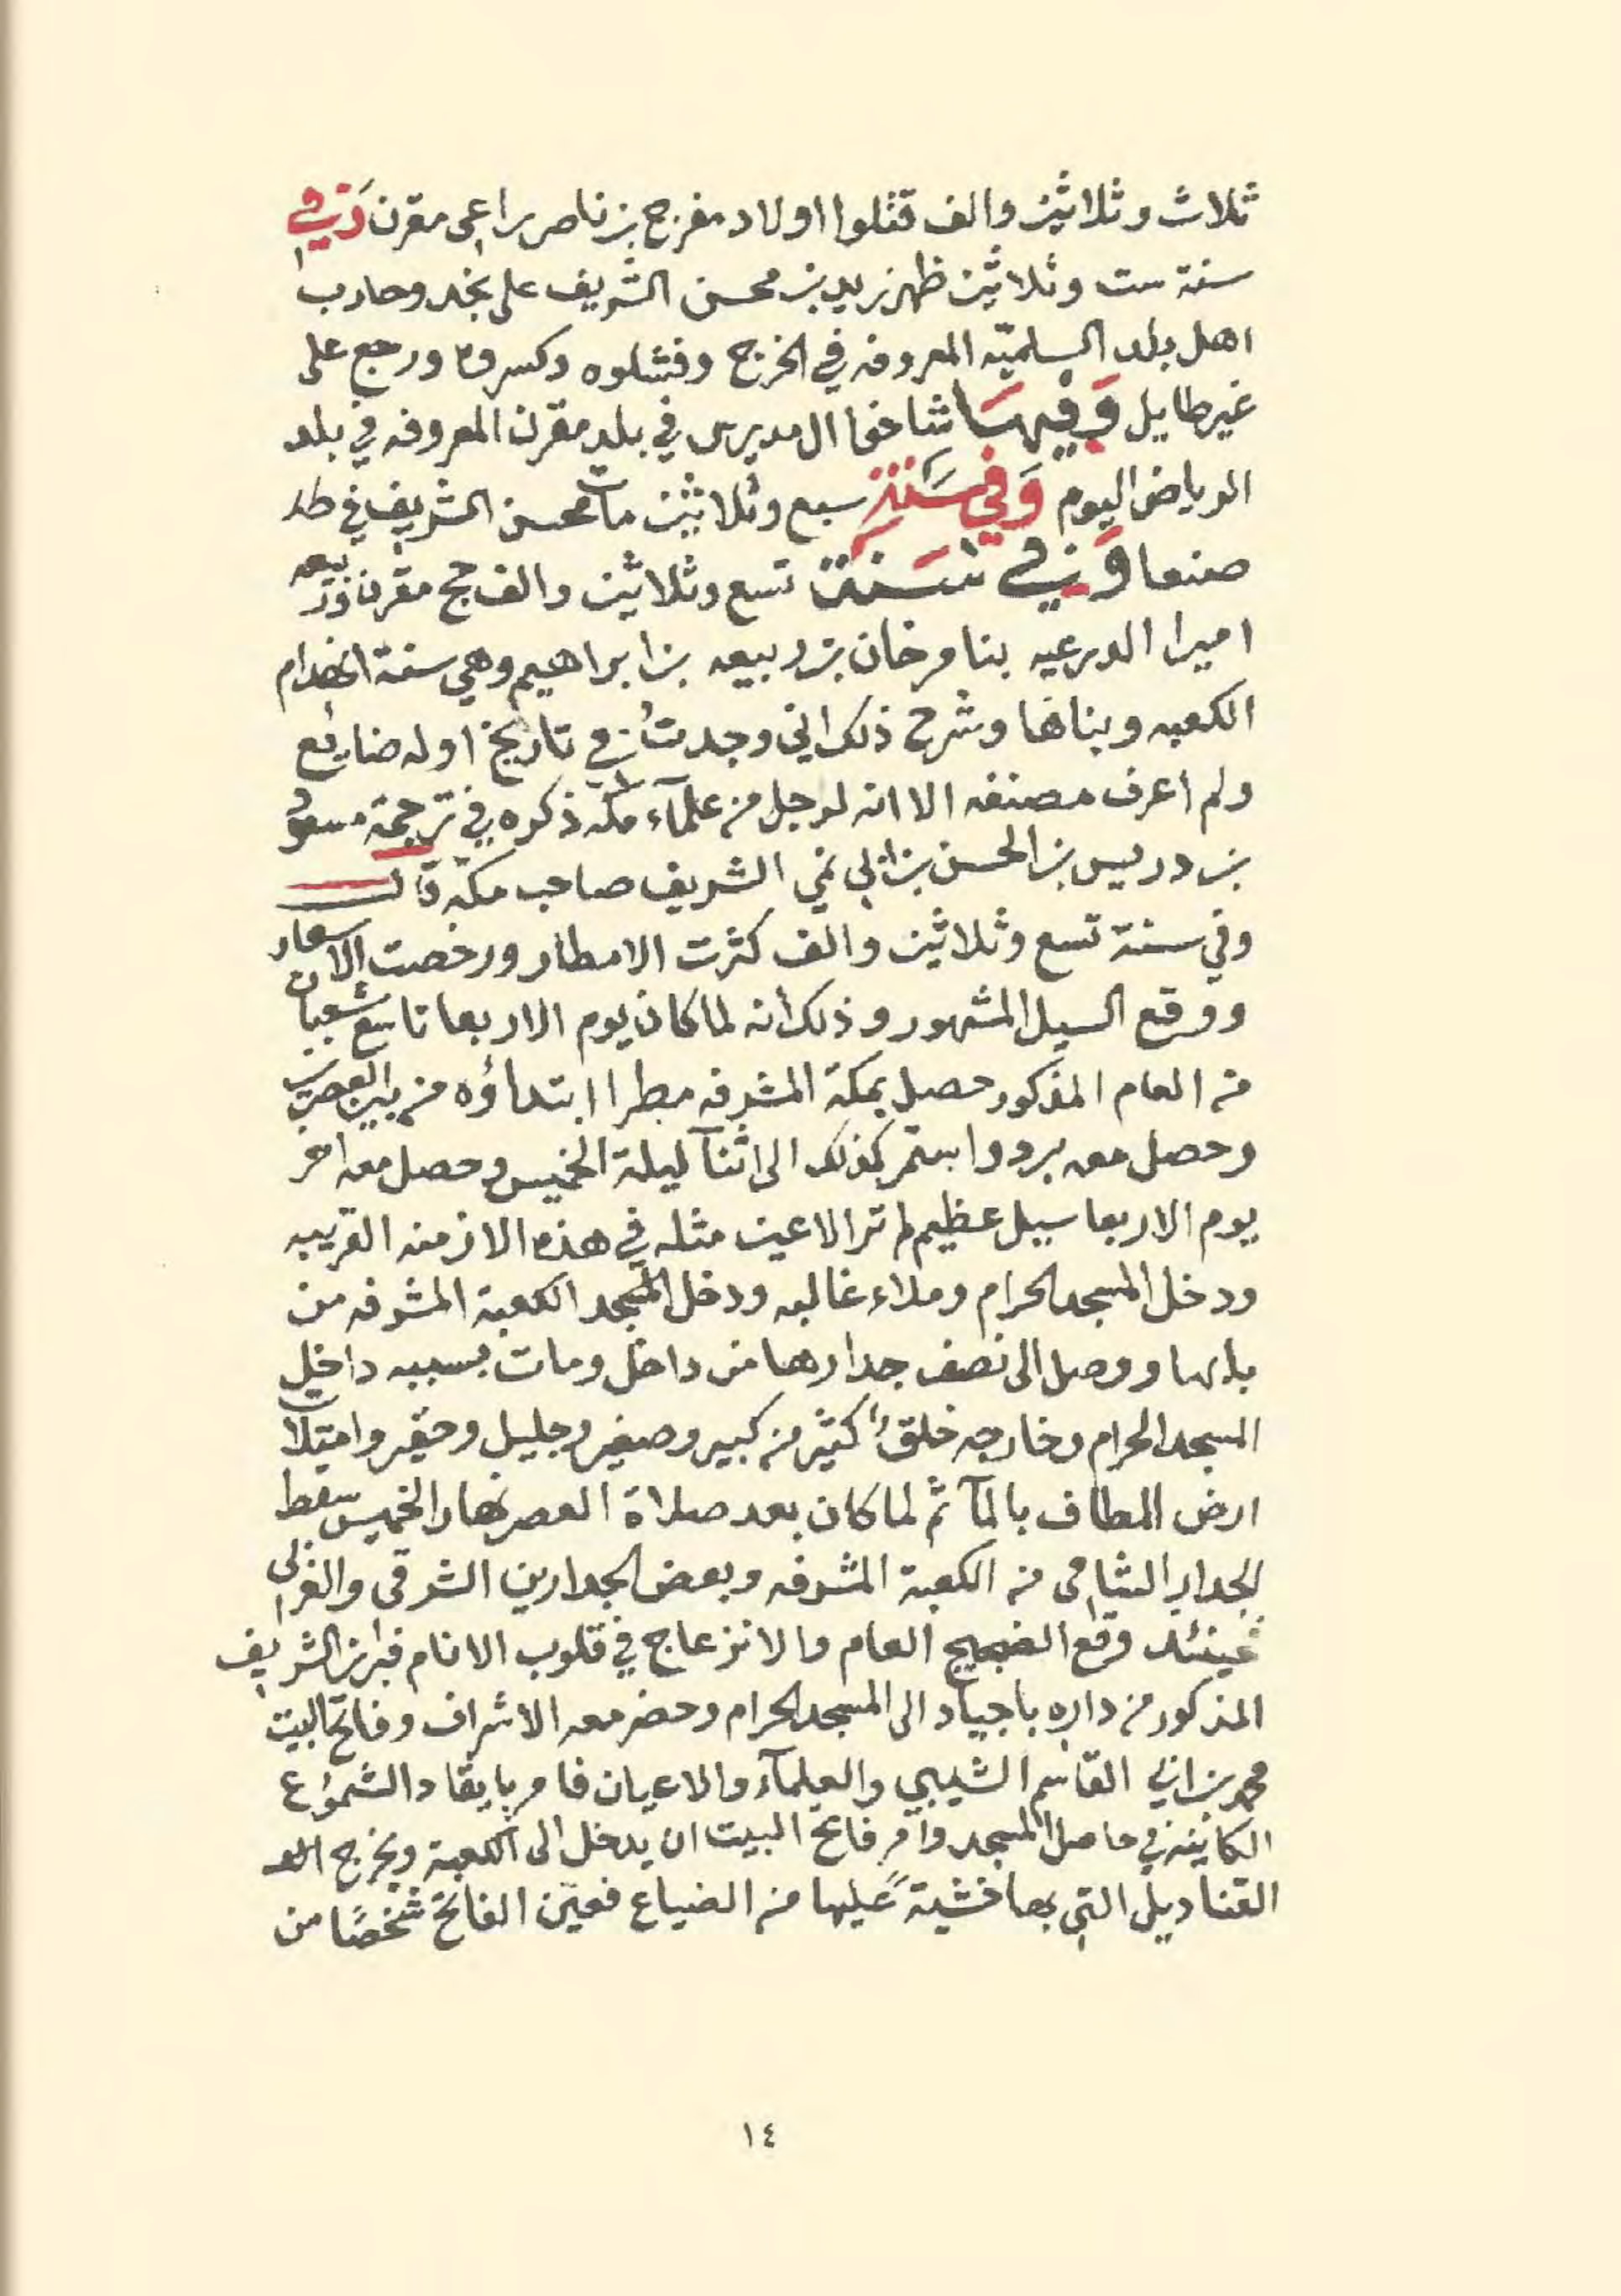 ثلاث وثلاثين والف قتلوا اولاد مفرج بن ناصر راعي مقرن وفي
سنة ست وثلاثين ظهر زيد بن محسن الشريف على نجد وحارب
اهل بلد السلميّه المعروفه في الخرج وفشلوه وكسروه ورجع على
غير طايل وَفيهَا شاخوا ال مديرس في بلد مقرن المعروفه في بلد
الرياض اليوم وَفي سَنة سبع وثلاثين مات محسن الشريف في
صنعا وَفي سَنة تسع وثلاثين والف حج مقرن وربيعه
اميرا الدرعيه بنا مرخان بن ربيعه بن ابراهيم وهي سنة انهدام
الكعبه وبناها وشرح ذلك اني وجدتُ في تاريخ اوله ضايع
ولم اعرف مصنفه الا انه لرجل من علمآء مكه ذكره في ترجمة مسعود
بن دريس بن الحسن بن ابي نمي الشريف صاحب مكّة قال
وفي سنة تسع وثلاثين والف كثرت الامطار ورخصت الاسعار
ووقع السيل المشهور وذلك أنه لما كان يوم الاربعا تاسع شعبان
من العام المذكور حصل بمكة المشرفه مطرا ابتداؤه من بين العصرين
وحصل معه برد واستمر كذلك الى اثنآ ليلة الخميس وحصل معه اخر
يوم الاربعا سيل عظيم لم تر الاعين مثله في هذه الازمنه القريبه
ودخل المسجد الحرام وملاء غالبه ودخل المسجد الكعبة المشرفه من
بابها ووصل الى نصف جدارها من داخل ومات بسببه داخل
المسجد الحرام وخارجه خلقٌ كثير من كبير وصغير وجليل وحقير وامتلات
ارض المطاف بالمآ ثم لما كان بعد صلاة العصر نهار الخميس سقط
الجدار الشامي من الكعبة المشرفه وبعض الجدارين الشرقي والغربي
فحينئذ وقع الضجيج العام والانزعاج في قلوب الانام فبرز الشريف
المذكور من داره باجياد الى المسجد الحرام وحضر معه الاشراف وفاتح البيت
محمد بن ابي القاسم الشيبي والعلمآء والاعيان فامر بايقاد الشموُع
الكاينه في حاصل المسجد وأمر فاتح البيت ان يدخل الى الكعبة ويخرج
القناديل التي بها خشيةً عليها من الضياع فعيّن الفاتح شخصًا من
١٤